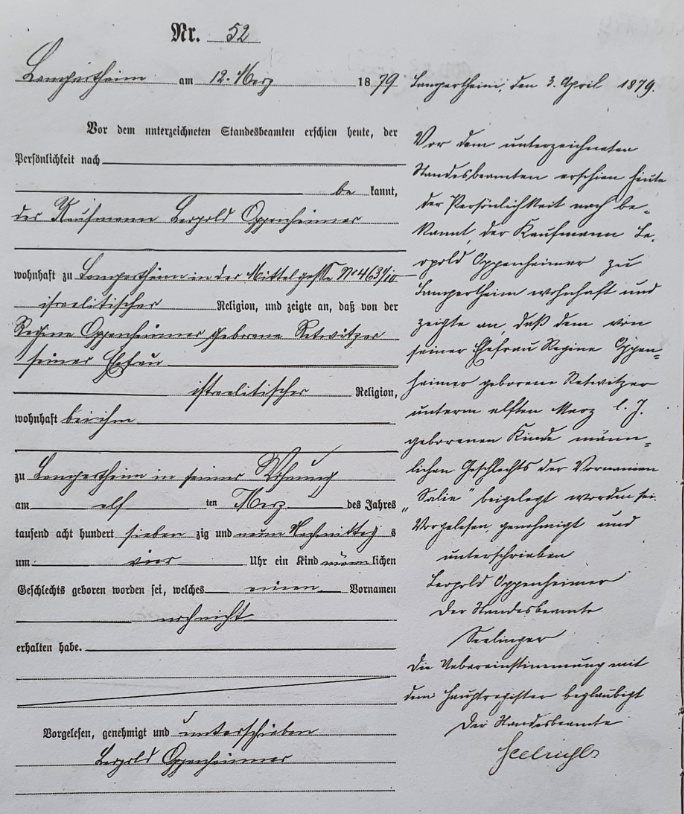 Nr. 52
Lampertheim am 12. Merz 1879
Vor dem unterzeichneten Standesbeamten erschien heute, der
Persönlichkeit nach
be kannt,
der Kaufmann Leopold Oppenheimer
wohnhaft zu Lampertheim in der Mittelgasse No 463 1/10
israelitischer Religion, und zeigte an, daß von der
Regine Oppenheimer geborene Retwitzer
seiner Ehefrau
israelitischer Religion,
wohnhaft bei ihm
zu Lampertheim in seiner Wohnung
am elf ten Merz des Jahres
tausend acht hundert sieben zig und neun Nachmittag s
um vier Uhr ein Kind männ lichen
Geschlechts geboren worden sei, welches einen Vornamen
noch nicht
erhalten habe.
Vorgelesen, genehmigt und unterschrieben
Leopold Oppenheimer
Lampertheim, den 3. April 1879.
Vor dem unterzeichneten
Standesbeamten erschien heute
der Persönlichkeit nach be-
kannt, der Kaufmann Le-
opold Oppenheimer zu
Lampertheim wohnhaft und
zeigte an, daß dem von
seiner Ehefrau Regine Oppen-
heimer geborene Retwitzer
unterm elften Merz l. J.
geborenen Kinde männ-
lichen Geschlechts der Vornamen
"Salie" beigelegt worden sei.
Vorgelesen, genehmigt und
unterschrieben
Leopold Oppenheimer
Der Standesbeamte
Seelinger
Die Uebereinstimmung mit
dem Hauptregister beglaubigt
Der Standesbeamte
Seelinger